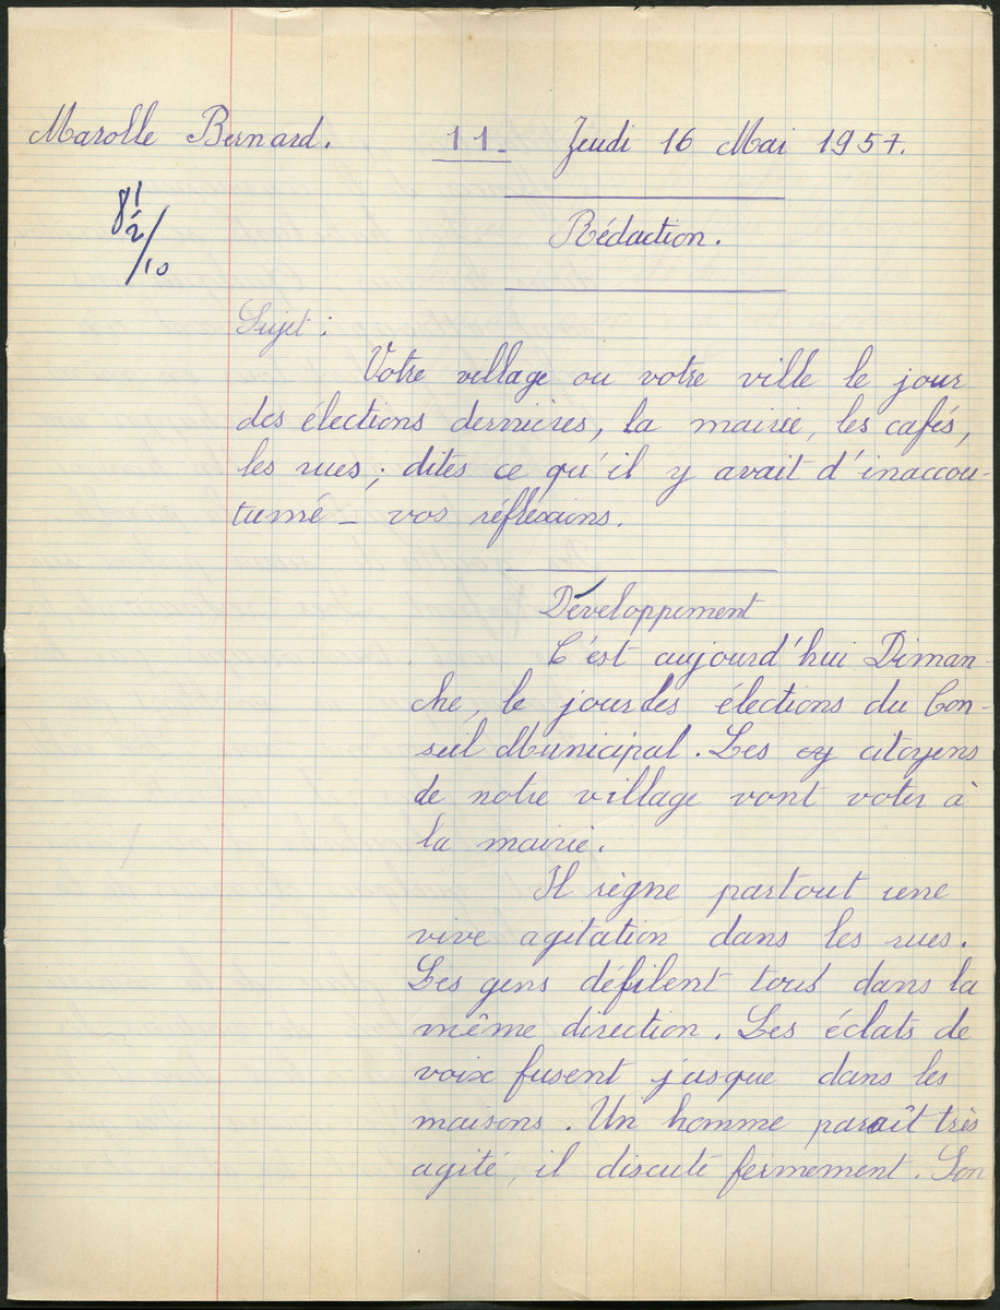 Marolle Bernard. 11. Jeudi 16 Mai 1957.
8 1/2 /10
Rédaction.
Sujet :
Votre village ou votre ville le jour
des élections dernières, la mairie, les cafés,
les rues ; dites ce qu'il y avait d'inaccou-
tumé - vos réflexions.
Développement
C'est aujourd'hui Diman-
che, le jour des élections du Con-
seil Municipal. Les citoyens
de notre village vont voter à
la mairie.
Il règne partout une
vive agitation dans les rues.
Les gens défilent tous dans la
même direction. Les éclats de
voix fusent jusque dans les
maisons. Un homme paraît très
agité, il discute fermement. Son